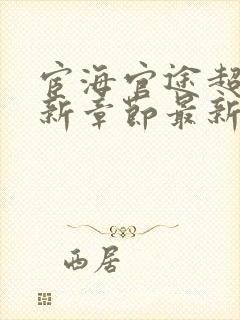 宦海官途超
新章节最新
西居